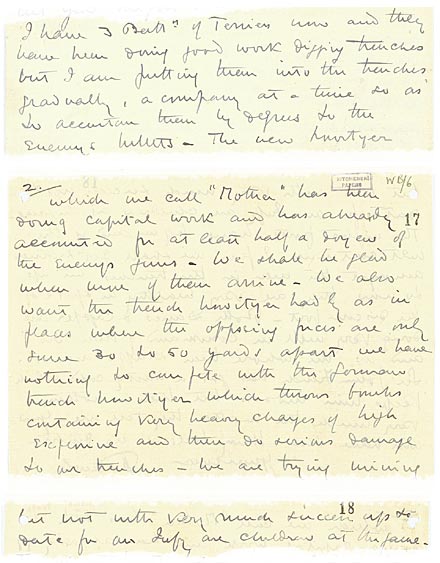 I have 3 Batt.ns of Terriers now and they
have been doing good work digging trenches
but I am putting them into the trenches
gradually, a company at a time so as
to accustom them by degrees to the
Enemy's bullets – The new howitzer
2. KITCHENER PAPERS WB/6
which we call "Mother" has been
doing capital work and has already 17
accounted for at least half a dozen of
the Enemy's guns – We shall be glad
when more of them arrive – We also
want the trench howitzer badly as in
places where the opposing forces are only
some 30 to 50 yards apart we have
nothing to compete with the German
trench howitzer which throws bombs
containing very heavy charges of high
Explosive and then do serious damage
to our trenches – We are trying mining
18
but not with very much success up to
date for our Infy are children at the game –